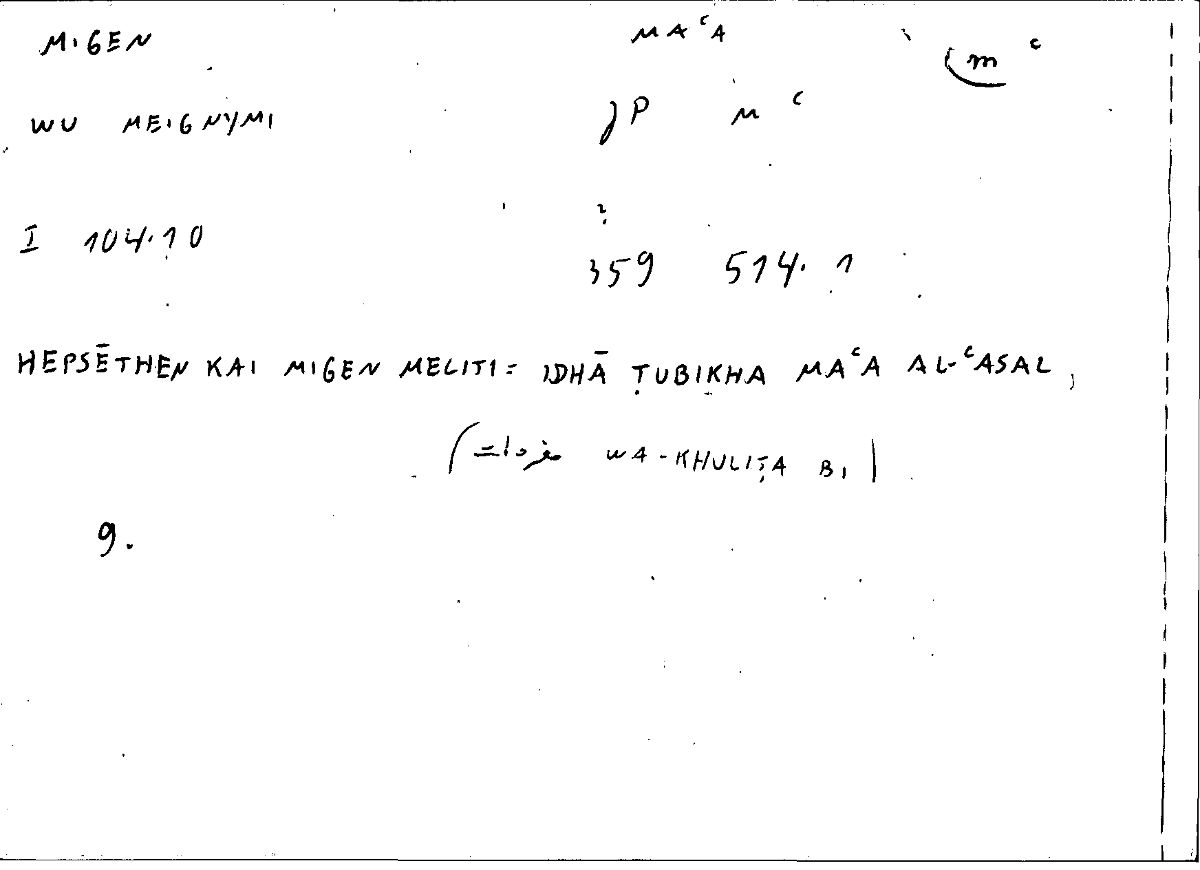 MIGEN MAʿA (m ʿ
WU MEIGNYMI JP M ʿ
I 104.10 359 514.1
HEPSĒTHEN KAI MIGEN MELITI = IDHĀ ṬUBIKHA MAʿA AL-ʿASAL,
(مفردات WA-KHULIṬA BI)
9.